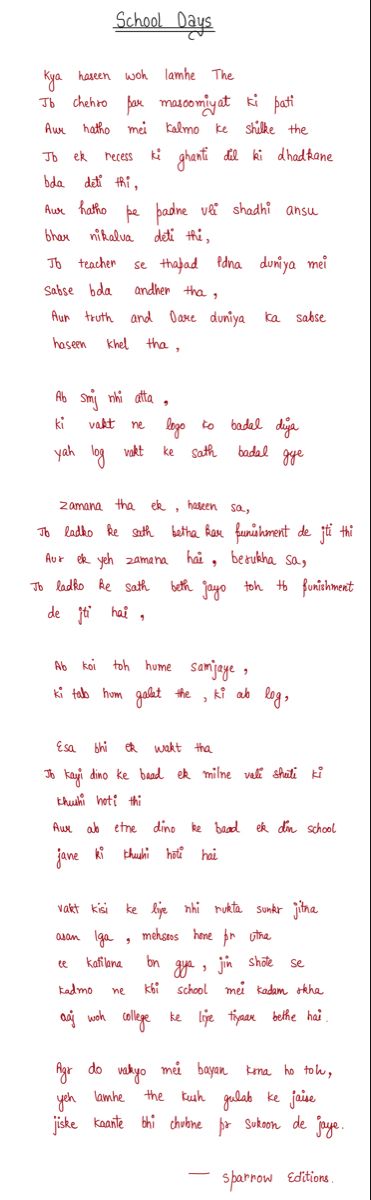 School Days
Kya haseen woh lamhe The
Jb chehro par masoomiyat ki pati
Aur hatho mei kalmo ke shilke the
Jb ek recess ki ghanti dil ki dhadkane
bda deti thi,
Aur hatho pe padne vli shadhi ansu
bhar nikalva deti thi,
Jb teacher se thapad pdna duniya mei
Sabse bda andher tha,
Aur truth and Dare duniya ka sabse
haseen khel tha,
Ab smj nhi atta,
ki vakt ne logo ko badal diya
yah log vakt ke sath badal gye
zamana tha ek, haseen sa,
Jb ladko ke sath betha kar punishment de jti thi
Aur ek yeh zamana hai, berukha sa,
Jb ladko ke sath beth jayo toh tb punishment
de jti hai,
Ab koi toh hume samjaye,
ki tab hum galat the, ki ab log,
Esa bhi ek wakt tha
Jb kayi dino ke baad ek milne vali shuti ki
khushi hoti thi
Aur ab etne dino ke baad ek din school
jane ki khushi hoti hai
vakt kisi ke liye nhi rukta sunkr jitna
asan lga, mehsoos hone pr utna
ee katilana bn gya, jin shote se
kadmo ne kbi school mei kadam rkha
aaj woh college ke liye tiyaar bethe hai.
Agr do vakyo mei bayan krna ho toh,
yeh lamhe the kush gulab ke jaise
jiske kaante bhi chubne pr sukoon de jaye.
— Sparrow Editions.